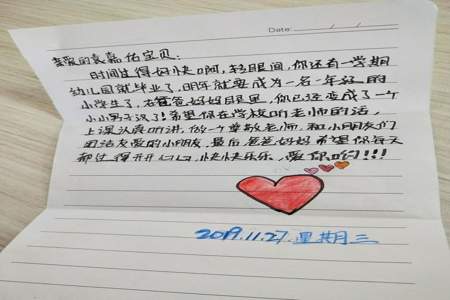 Date:
亲爱的袁嘉佑宝贝:
时间过得好快啊,转眼间,你还有一学期
幼儿园就毕业了,明年就要成为一名一年级的
小学生了,在爸爸妈妈眼里,你已经变成了一个
小小男子汉了!希望你在学校听老师的话,
上课认真听讲,做一个尊敬老师,和小朋友们
团结友爱的小朋友,最后,爸爸妈妈希望你每天
都过得开开心心,快快乐乐,爱你哟!!!
2019.11.27.星期三